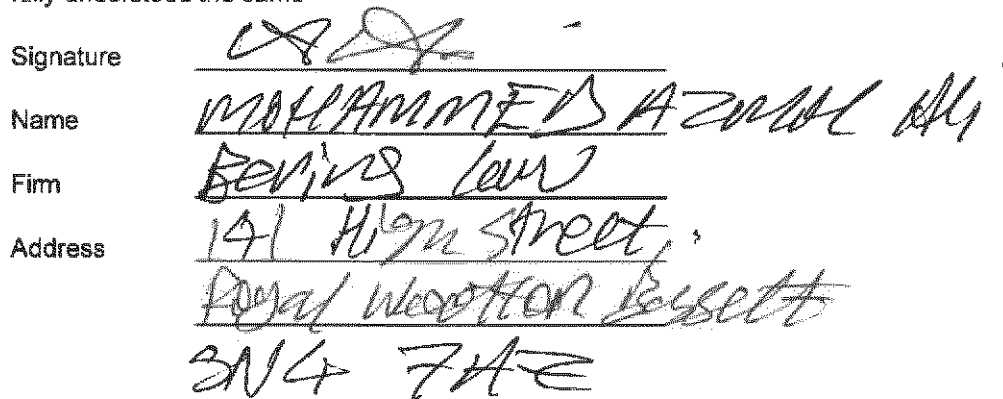 fully understood the same
Signature
Name MOHAMMED AZMOL Ali
Firm Bevins Law
Address 141 High Street,
Royal Wootton Bassett
SN4 7AZ